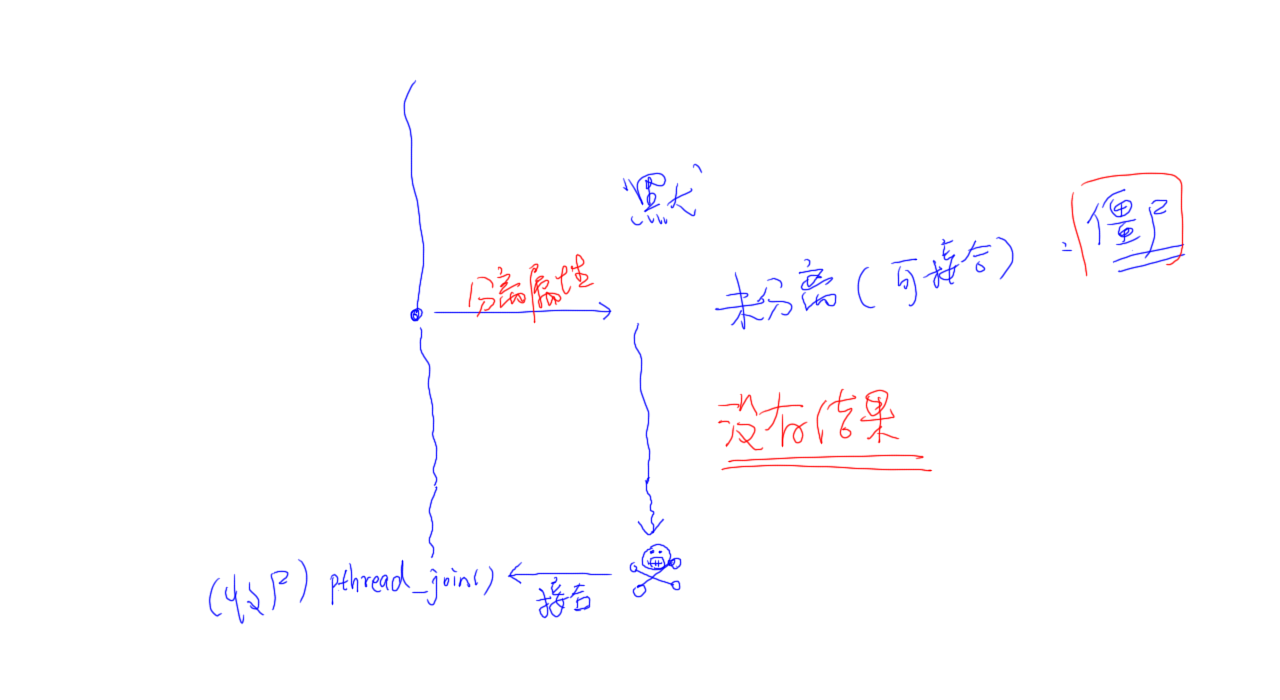 "黑犬"
分离属性
未分离(可接合): 僵尸
没有结果
(收尸) pthread_join()
接合